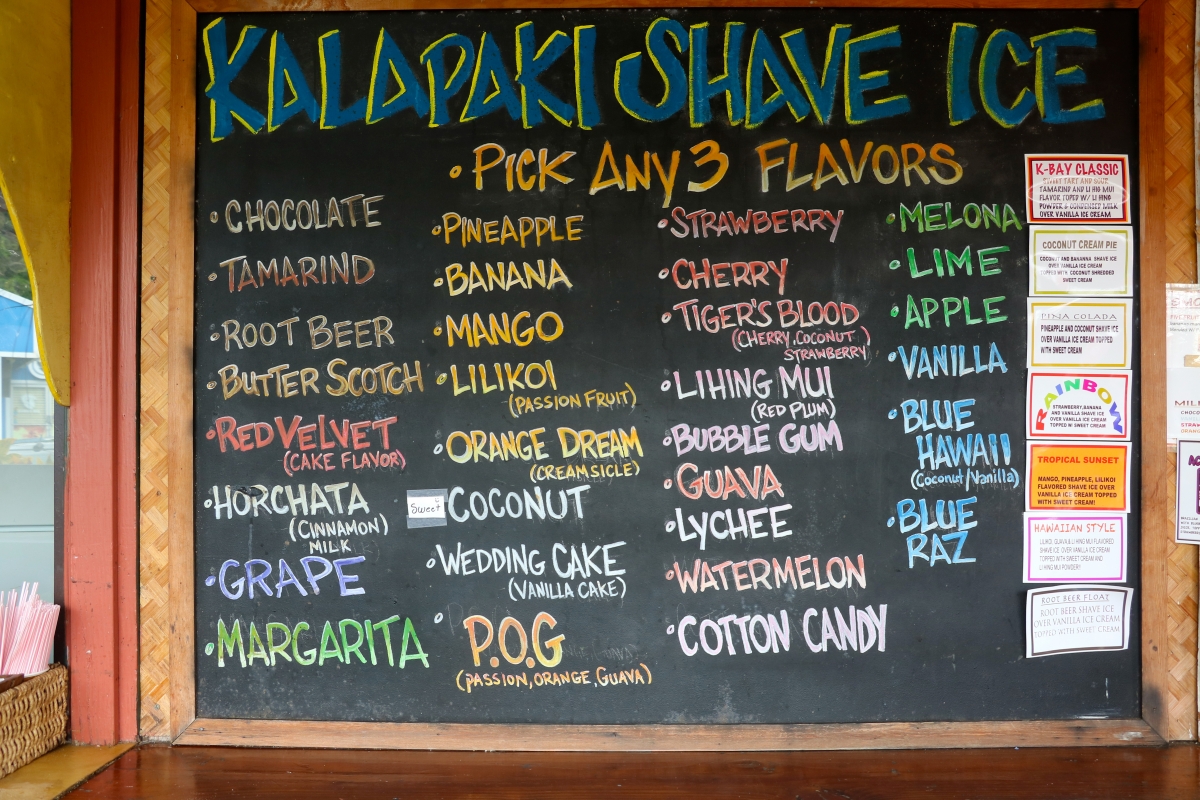 KALAPAKI SHAVE ICE
• PICK ANY 3 FLAVORS
• CHOCOLATE
• TAMARIND
• ROOT BEER
• BUTTER SCOTCH
• RED VELVET
(CAKE FLAVOR)
• HORCHATA
(CINNAMON)
MILK
• GRAPE
• MARGARITA
• PINEAPPLE
• BANANA
• MANGO
• LILIKOI
(PASSION FRUIT)
• ORANGE DREAM
(CREAMSICLE)
Sweet
COCONUT
• WEDDING CAKE
(VANILLA CAKE)
• P.O.G
(PASSION, ORANGE, GUAVA)
• STRAWBERRY
• CHERRY
• TIGER'S BLOOD
(CHERRY, COCONUT
STRAWBERRY)
• LIHING MUI
(RED PLUM)
• BUBBLE GUM
• GUAVA
• LYCHEE
• WATERMELON
• COTTON CANDY
• MELONA
• LIME
• APPLE
• VANILLA
• BLUE
HAWAII
(Coconut/Vanilla)
• BLUE
RAZ
K-BAY CLASSIC
SWEET TART AND SOUR
TAMARIND AND LI HIG MUI
FLAVOR TOPED W/ LI HING
POWDER & CONDENSED MILK
OVER VANILLA ICE CREAM
COCONUT CREAM PIE
COCONUT AND BANANNA SHAVE ICE
OVER VANILLA ICE CREAM
TOPPED WITH COCONUT SHREDDED
SWEET CREAM
PINA COLADA
PINEAPPLE AND COCONUT SHAVE ICE
OVER VANILLA ICE CREAM TOPPED
WITH SWEET CREAM
RAINBOW
STRAWBERRY, BANANA
AND VANILLA SHAVE ICE
OVER VANILLA ICE CREAM
TOPPED W/ SWEET CREAM
TROPICAL SUNSET
MANGO, PINEAPPLE, LILIKOI
FLAVORED SHAVE ICE OVER
VANILLA ICE CREAM TOPPED
WITH SWEET CREAM!
HAWAIIAN STYLE
LILIKOI, GUAVA & LI HING MUI FLAVORED
SHAVE ICE OVER VANILLA ICE CREAM
TOPPED WITH SWEET CREAM AND
LI HING MUI POWDER!
ROOT BEER FLOAT
ROOT BEER SHAVE ICE
OVER VANILLA ICE CREAM
TOPPED WITH SWEET CREAM